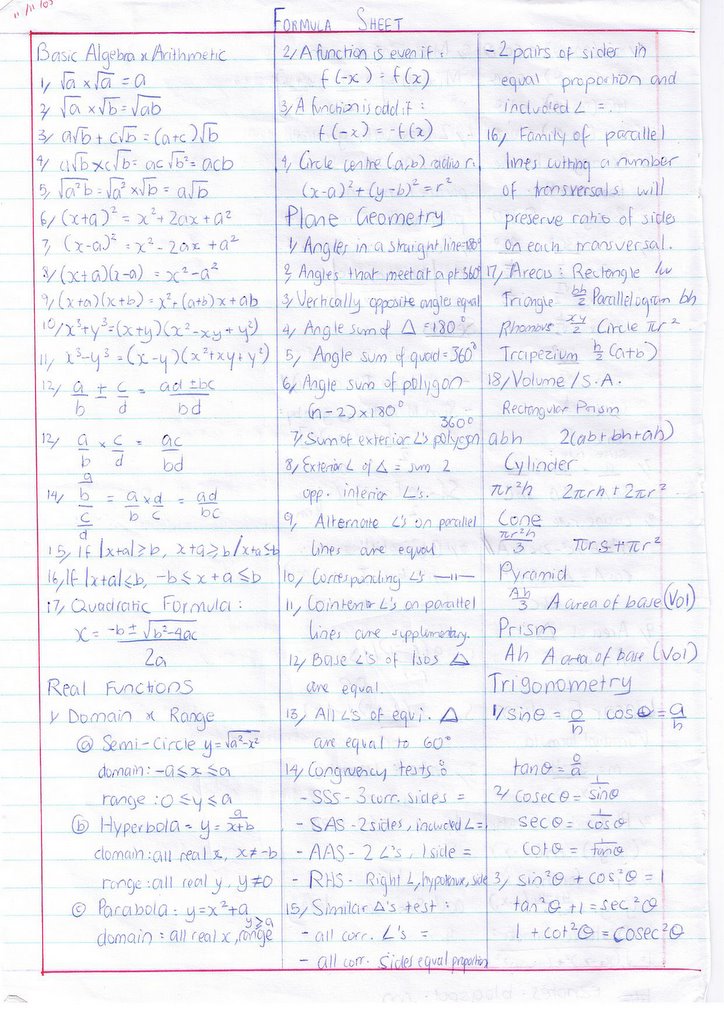 FORMULA SHEET
Basic Algebra & Arithmetic
1, √a × √a = a
2, √a × √b = √ab
3, a√b + c√b = (a+c)√b
4, a√b × c√b = ac√b² = acb
5, √a²b = √a² × √b = a√b
6, (x+a)² = x² + 2ax + a²
7, (x-a)² = x² - 2ax + a²
8, (x+a)(x-a) = x² - a²
9, (x+a)(x+b) = x² + (a+b)x + ab
10, x³+y³ = (x+y)(x²-xy+y²)
11, x³-y³ = (x-y)(x²+xy+y²)
12, a/b ± c/d = ad ± bc / bd
12, a/b × c/d = ac/bd
14, a/b / c/d = a/b × d/c = ad/bc
15, If |x+a| ≥ b, x+a ≥ b / x+a ≤ b
16, If |x+a| ≤ b, -b ≤ x+a ≤ b
17, Quadratic Formula:
x = -b ± √b²-4ac / 2a
Real Functions
1, Domain & Range
ⓐ Semi-Circle y = √a²-x²
domain: -a ≤ x ≤ a
range: 0 ≤ y ≤ a
ⓑ Hyperbola = y = a/x+b
domain: all real x, x ≠ -b
range: all real y, y ≠ 0
ⓒ Parabola: y = x² + a
domain: all real x, range y ≥ a
2, A function is even if:
f(-x) = f(x)
3, A function is odd if:
f(-x) = -f(x)
4, Circle centre (a,b) radius r:
(x-a)² + (y-b)² = r²
Plane Geometry
1, Angles in a straight line = 180°
2, Angles that meet at a pt 360°
3, Vertically opposite angles equal
4, Angle sum of △ = 180°
5, Angle sum of quad = 360°
6, Angle sum of polygon
(n-2) × 180°
7, Sum of exterior ∠'s polygon 360°
8, Exterior ∠ of △ = sum 2
opp. interior ∠'s.
9, Alternate ∠'s on parallel
lines are equal
10, Corresponding ∠'s —"—
11, Cointerior ∠'s on parallel
lines are supplementary.
12, Base ∠'s of Isos △
are equal.
13, All ∠'s of equi. △
are equal to 60°
14, Congruency tests:
- SSS - 3 corr. sides =
- SAS - 2 sides, included ∠ =
- AAS - 2 ∠'s, 1 side =
- RHS - Right ∠, hypotenuse, side
15, Similar △'s test:
- all corr. ∠'s =
- all corr. sides equal proportion
- 2 pairs of sides in
equal proportion and
included ∠ =.
16, Family of parallel
lines cutting a number
of transversals will
preserve ratio of sides
on each transversal.
17, Areas: Rectangle lw
Triangle bh/2 Parallelogram bh
Rhombus xy/2 Circle πr².
Trapezium h/2 (a+b)
18, Volume / S.A.
Rectangular Prism
abh 2(ab+bh+ah)
Cylinder
πr²h 2πrh + 2πr²
Cone
πr²h/3 πrs + πr²
Pyramid
Ah/3 A area of base (Vol)
Prism
Ah A area of base (Vol)
Trigonometry
1, sinθ = o/h cosθ = a/h
tanθ = o/a
2, cosecθ = 1/sinθ
secθ = 1/cosθ
cotθ = 1/tanθ
3, sin²θ + cos²θ = 1
tan²θ + 1 = sec²θ
1 + cot²θ = cosec²θ